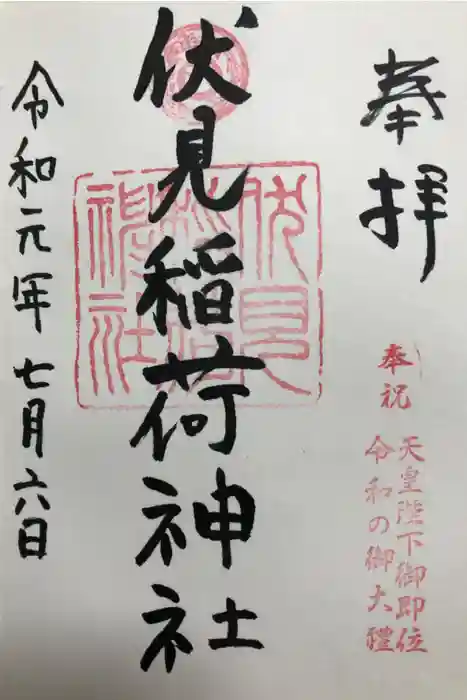 奉拝
奉祝
天皇陛下御即位
令和の御大禮
伏見稲荷神社
伏見稲荷神社
令和元年七月六日